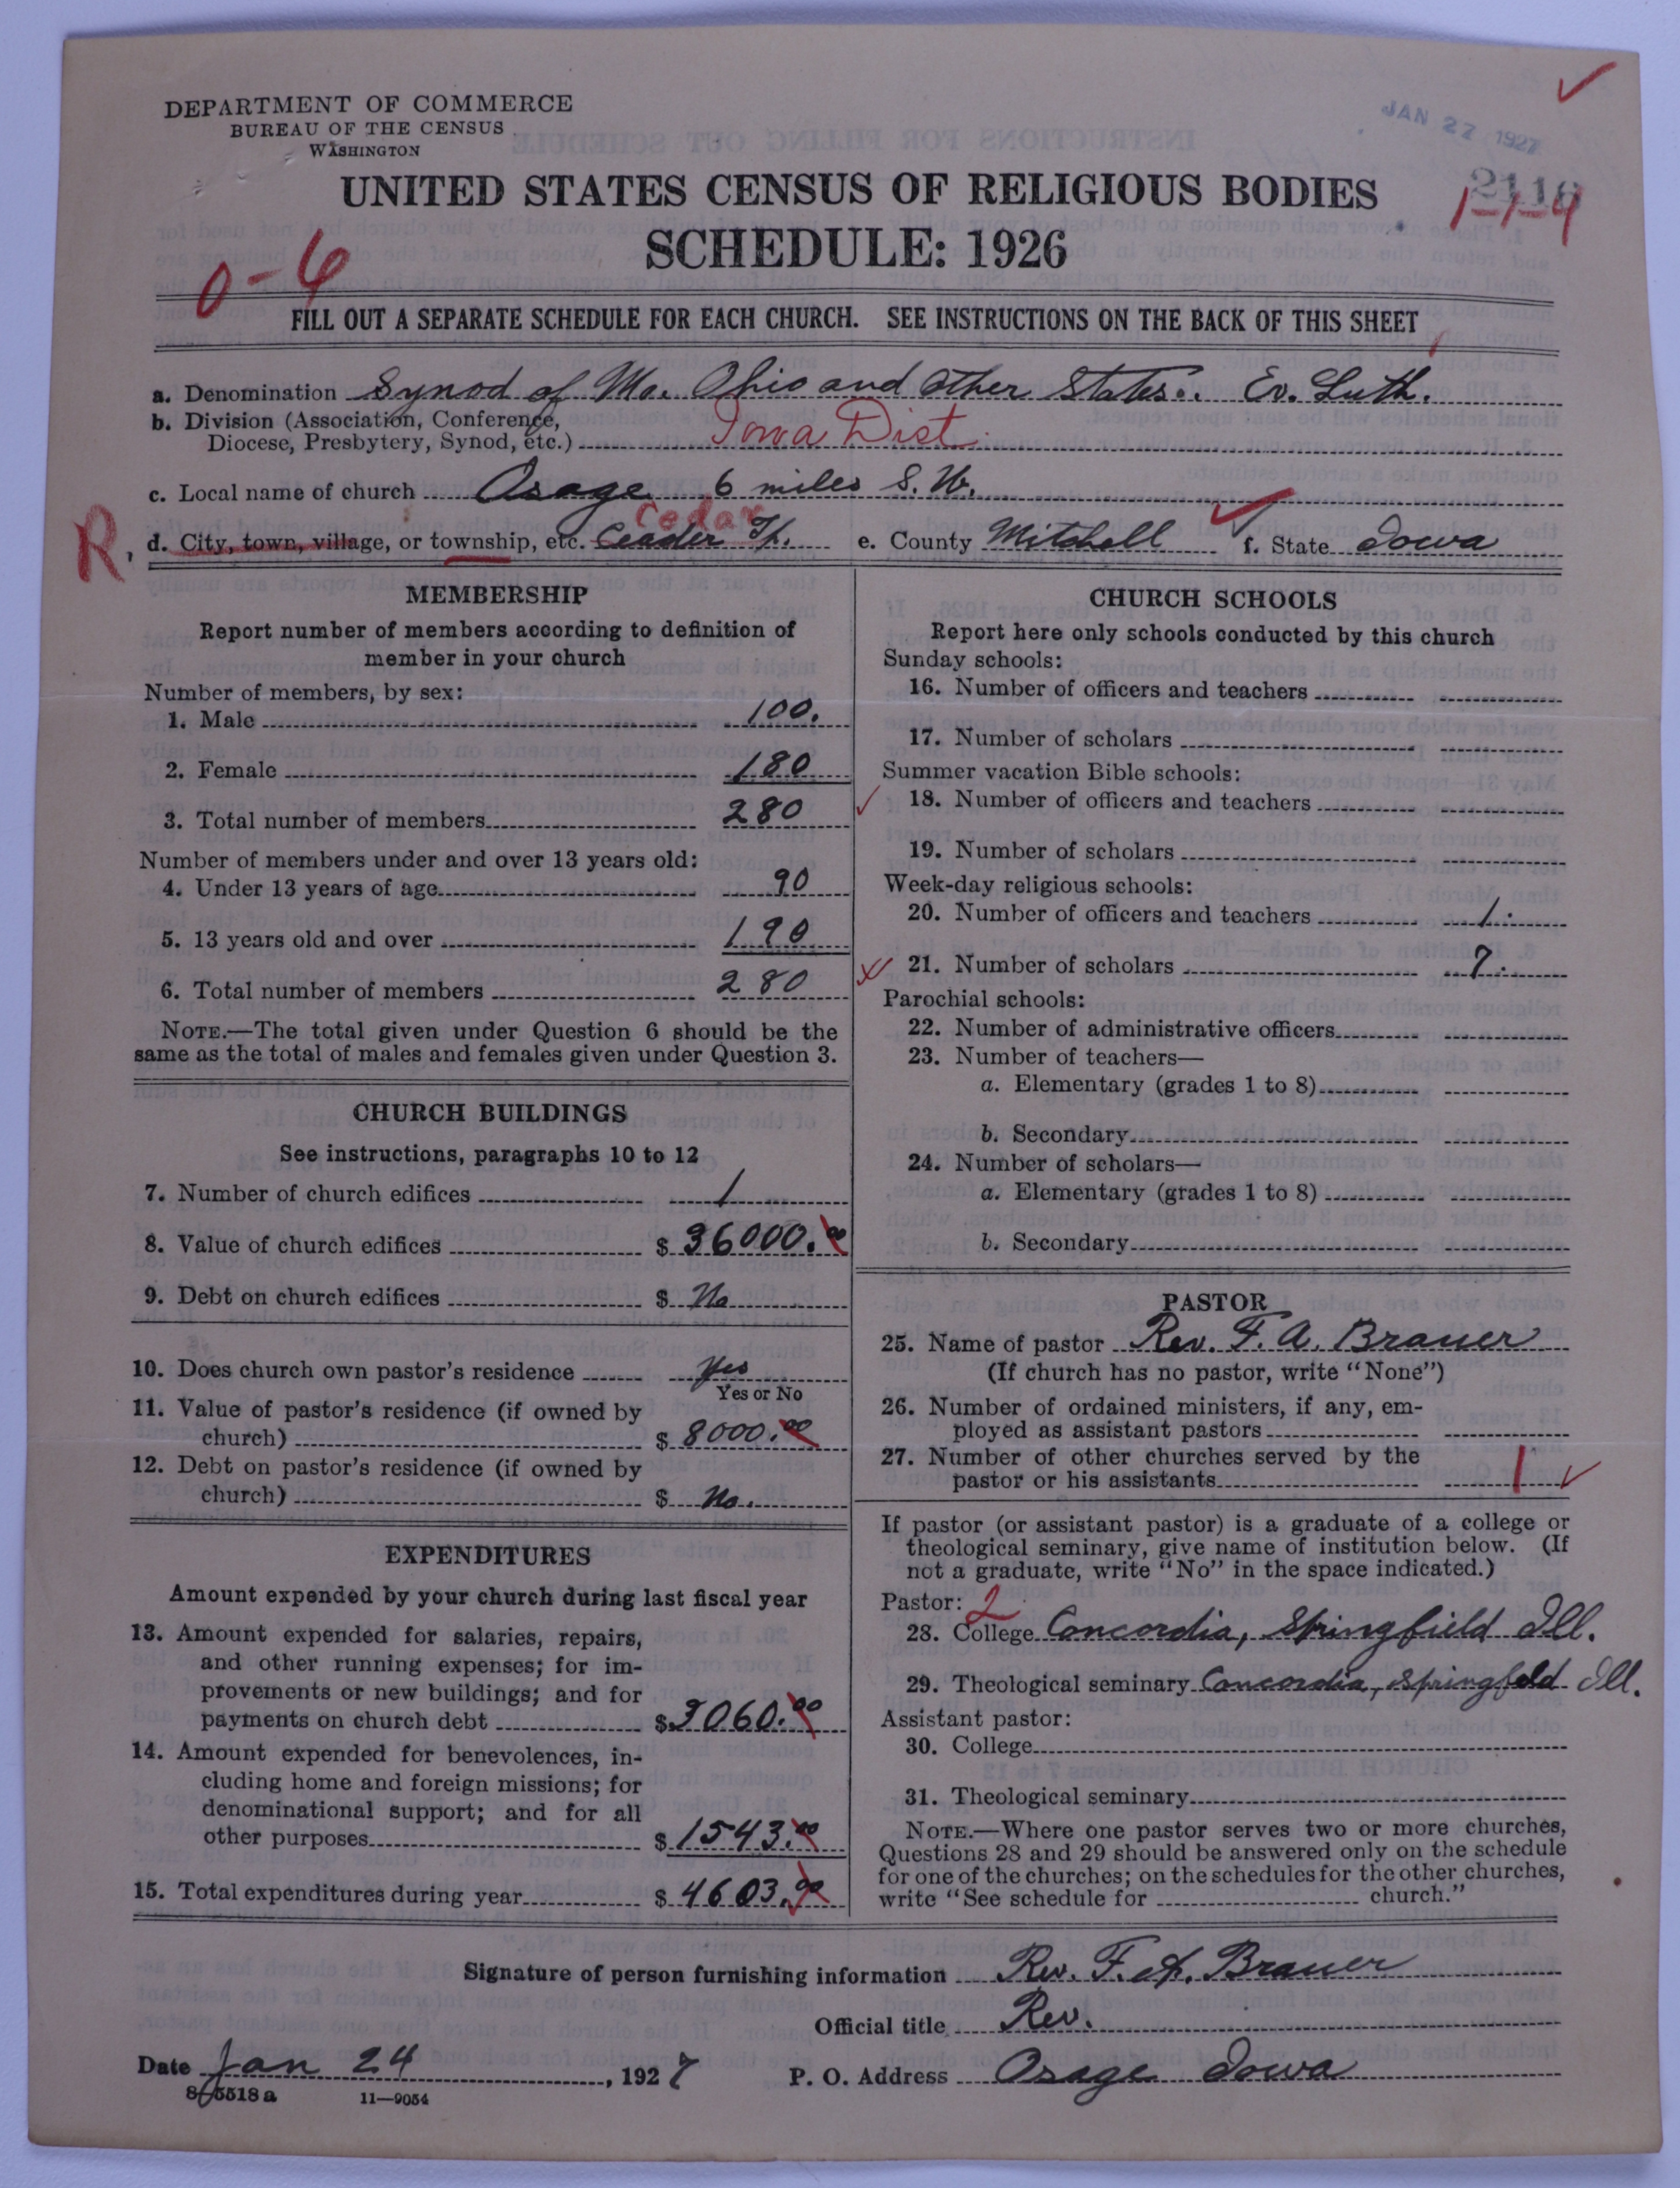 DEPARTMENT OF COMMERCE
BUREAU OF THE CENSUS
WASHINGTON
JAN 27 1927
2116
1-1-4
UNITED STATES CENSUS OF RELIGIOUS BODIES
SCHEDULE: 1926
0-6
FILL OUT A SEPARATE SCHEDULE FOR EACH CHURCH. SEE INSTRUCTIONS ON THE BACK OF THIS SHEET
a. Denomination Synod of Mo. Ohio and other States. Ev. Luth.
b. Division (Association, Conference,
Diocese, Presbytery, Synod, etc.) Iowa Dist.
c. Local name of church Osage 6 miles S. W.
Cedar
R, d. City, town, village, or township, etc. Ceader Tp. e. County Mitchell f. State Iowa
MEMBERSHIP
Report number of members according to definition of
member in your church
Number of members, by sex:
1. Male 100.
2. Female 180
3. Total number of members 280
Number of members under and over 13 years old:
4. Under 13 years of age 90
5. 13 years old and over 190
6. Total number of members 280
NOTE.—The total given under Question 6 should be the
same as the total of males and females given under Question 3.
CHURCH BUILDINGS
See instructions, paragraphs 10 to 12
7. Number of church edifices 1
8. Value of church edifices $ 36000.00
9. Debt on church edifices $ No
10. Does church own pastor's residence Yes
Yes or No
11. Value of pastor's residence (if owned by
church) $ 8000.00
12. Debt on pastor's residence (if owned by
church) $ No.
EXPENDITURES
Amount expended by your church during last fiscal year
13. Amount expended for salaries, repairs,
and other running expenses; for im-
provements or new buildings; and for
payments on church debt $ 3060.00
14. Amount expended for benevolences, in-
cluding home and foreign missions; for
denominational support; and for all
other purposes $ 1543.00
15. Total expenditures during year $ 4603.00
CHURCH SCHOOLS
Report here only schools conducted by this church
Sunday schools:
16. Number of officers and teachers
17. Number of scholars
Summer vacation Bible schools:
18. Number of officers and teachers
19. Number of scholars
Week-day religious schools:
20. Number of officers and teachers 1.
21. Number of scholars 7.
Parochial schools:
22. Number of administrative officers
23. Number of teachers—
a. Elementary (grades 1 to 8)
b. Secondary
24. Number of scholars—
a. Elementary (grades 1 to 8)
b. Secondary
PASTOR
25. Name of pastor Rev. F. A. Brauer
(If church has no pastor, write "None")
26. Number of ordained ministers, if any, em-
ployed as assistant pastors
27. Number of other churches served by the
pastor or his assistants 1
If pastor (or assistant pastor) is a graduate of a college or
theological seminary, give name of institution below. (If
not a graduate, write "No" in the space indicated.)
Pastor: 2
28. College Concordia, Springfield Ill.
29. Theological seminary Concordia, Springfeld Ill.
Assistant pastor:
30. College
31. Theological seminary
NOTE.—Where one pastor serves two or more churches,
Questions 28 and 29 should be answered only on the schedule
for one of the churches; on the schedules for the other churches,
write "See schedule for church."
Signature of person furnishing information Rev. F. A. Brauer
Official title Rev.
Date Jan 24, 1927 P. O. Address Osage Iowa
8-5518 a 11—9054